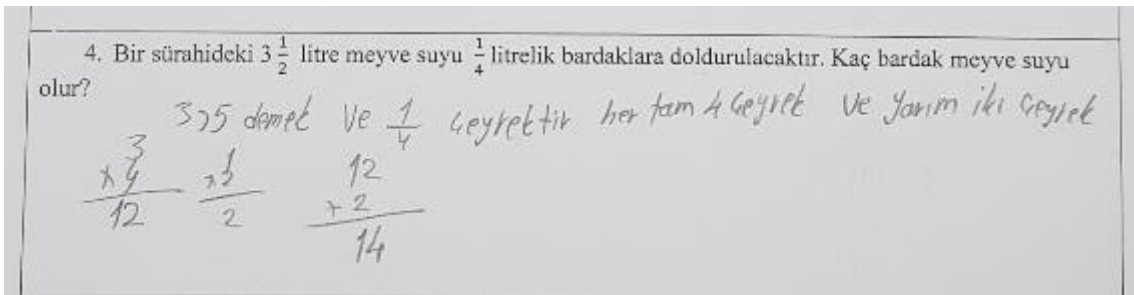 4. Bir sürahideki 3 1/2 litre meyve suyu 1/4 litrelik bardaklara doldurulacaktır. Kaç bardak meyve suyu
olur?
3,5 demek ve 1/4 çeyrektir her tam 4 çeyrek ve yarım iki çeyrek
3 1 12
x 4 x 2 + 2
12 2 14